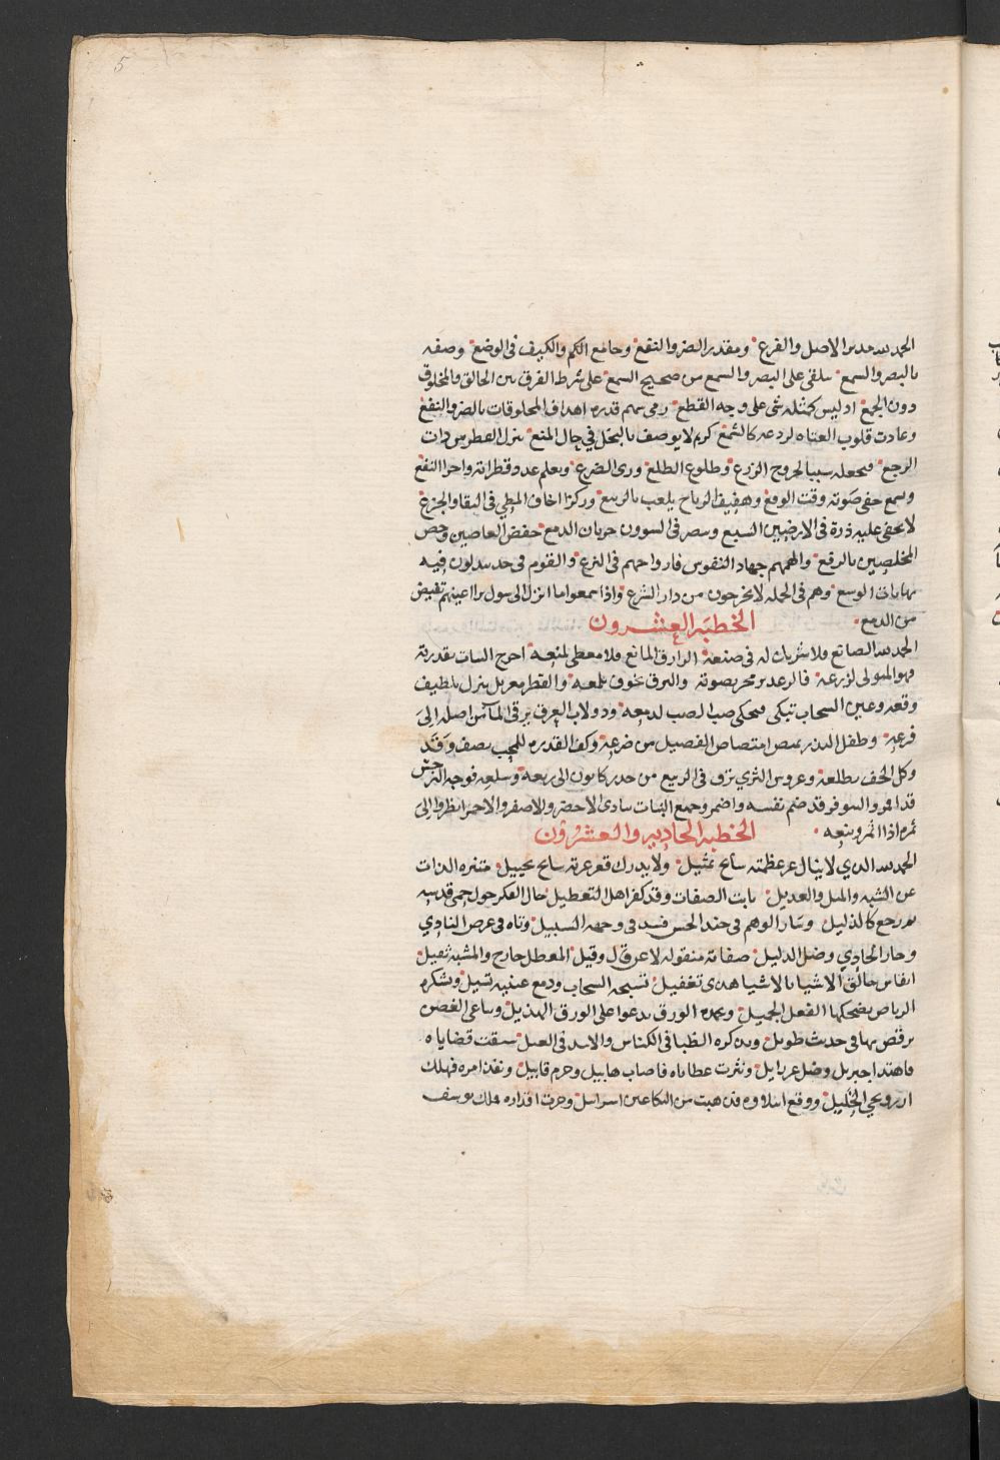 5
الحمد لله مدبر الاصل والفرع ومقدر الضر والنفع وجامع الكم والكيف فى الوضع وصفه
بالبصر والسمع تلقى على البصر والسمع من صحيح السمع على شرط الفرق بين الخالق والمخلوق
دون الجمع اذ ليس كمثله شى على وجه القطع رمى سهم قدره اهداف المخلوقات بالضر والنفع
وعادت قلوب العتاه لردعه كالشمع كريم لا يوصف بالبخل في حال المنع ينزل القطر من ذات
الرجع فيجعله سببا لخروج الزرع وطلوع الطلع ورى الضرع ويعلم عدد قطراته واجزا النفع
ويسمع خفى صوته وقت الوقع وهفيف الرياح يلعب بالربيع وركز اخفاف المطي فى البقاع والجزع
لا يخفى عليه ذرة فى الارضين السبع ويبصر فى السوون جريان الدمع خفض العاصين وخص
المخلصين بالرفع والهمهم جهاد النفوس فارواحهم فى النزع والقوم فى جد يبذلون فيه
نهايات الوسع وهم فى الجمله لا يخرجون من دار الشرع واذا سمعوا ما انزل الى الرسول ترا اعينهم تفيض
من الدمع
الخطبة العشرون
الحمد لله الصانع فلا شريك له فى صنعه الرازق المانع فلا معطى لمنعه اخرج النبات بقدرته
فهو المتولى لزرعه فالرعد يزمجر بصوته والبرق خوف بلمعه والقطر ينزل بلطيف
وقعه وعين السحاب تبكى فيحكى صب الصب لدمعه ودولاب العرق يرقى الما من اصله الى
فرعه وطفل البذر يمتص امتصاص الفصيل من ضرعه وكف القدره
وكل بطلعه وعروس الثرى تزف فى الربيع من خدر كانون الى ربعه
قد ضم نفسه واضمر وجمع النبات ينادى الاخضر والاصفر والاحمر انظروا الى
ثمره اذا اثمر وينعه
الخطبة الحاديه والعشرون
الحمد لله الذي لا ينال عز عظمته سايح تمثيل ولا يدرك قعر عزته سابح تخييل متنزه الذات
عن الشبه والمثل والعديل ثابت الصفات وقد كفر اهل التعطيل جال الفكر حول حمى قدسه
فرجع كالذليل وسار الوهم فى جند الحس فسد فى وجهه السبيل وتاه فى عرض النادي
وحار الحادي وضل الدليل صفاته منقوله لا عن قال وقيل المعطل جارح والمشبه ثقيل
خالق الاشيا بالاشيا هذى تغفيل تسبحه السحاب ودمع عينيه تسيل وتشكره
الرياض يضحكها الفعل الجميل وبحمده الورق يدعوا على الورق الهذيل وساعى الغصن
يرقص بها فى حديث طويل ويذكره الظبا فى الكناس والاسد فى الغيل سبقت قضاياه
فاهتدا جبريل وضل عزازيل ونثرت عطاياه فاصاب هابيل وحرم قابيل ونفذ امره فهلك
ازر ونجي الخليل ووقع فذهبت من البكا عين اسرائيل وجرت اقداره فملك يوسف